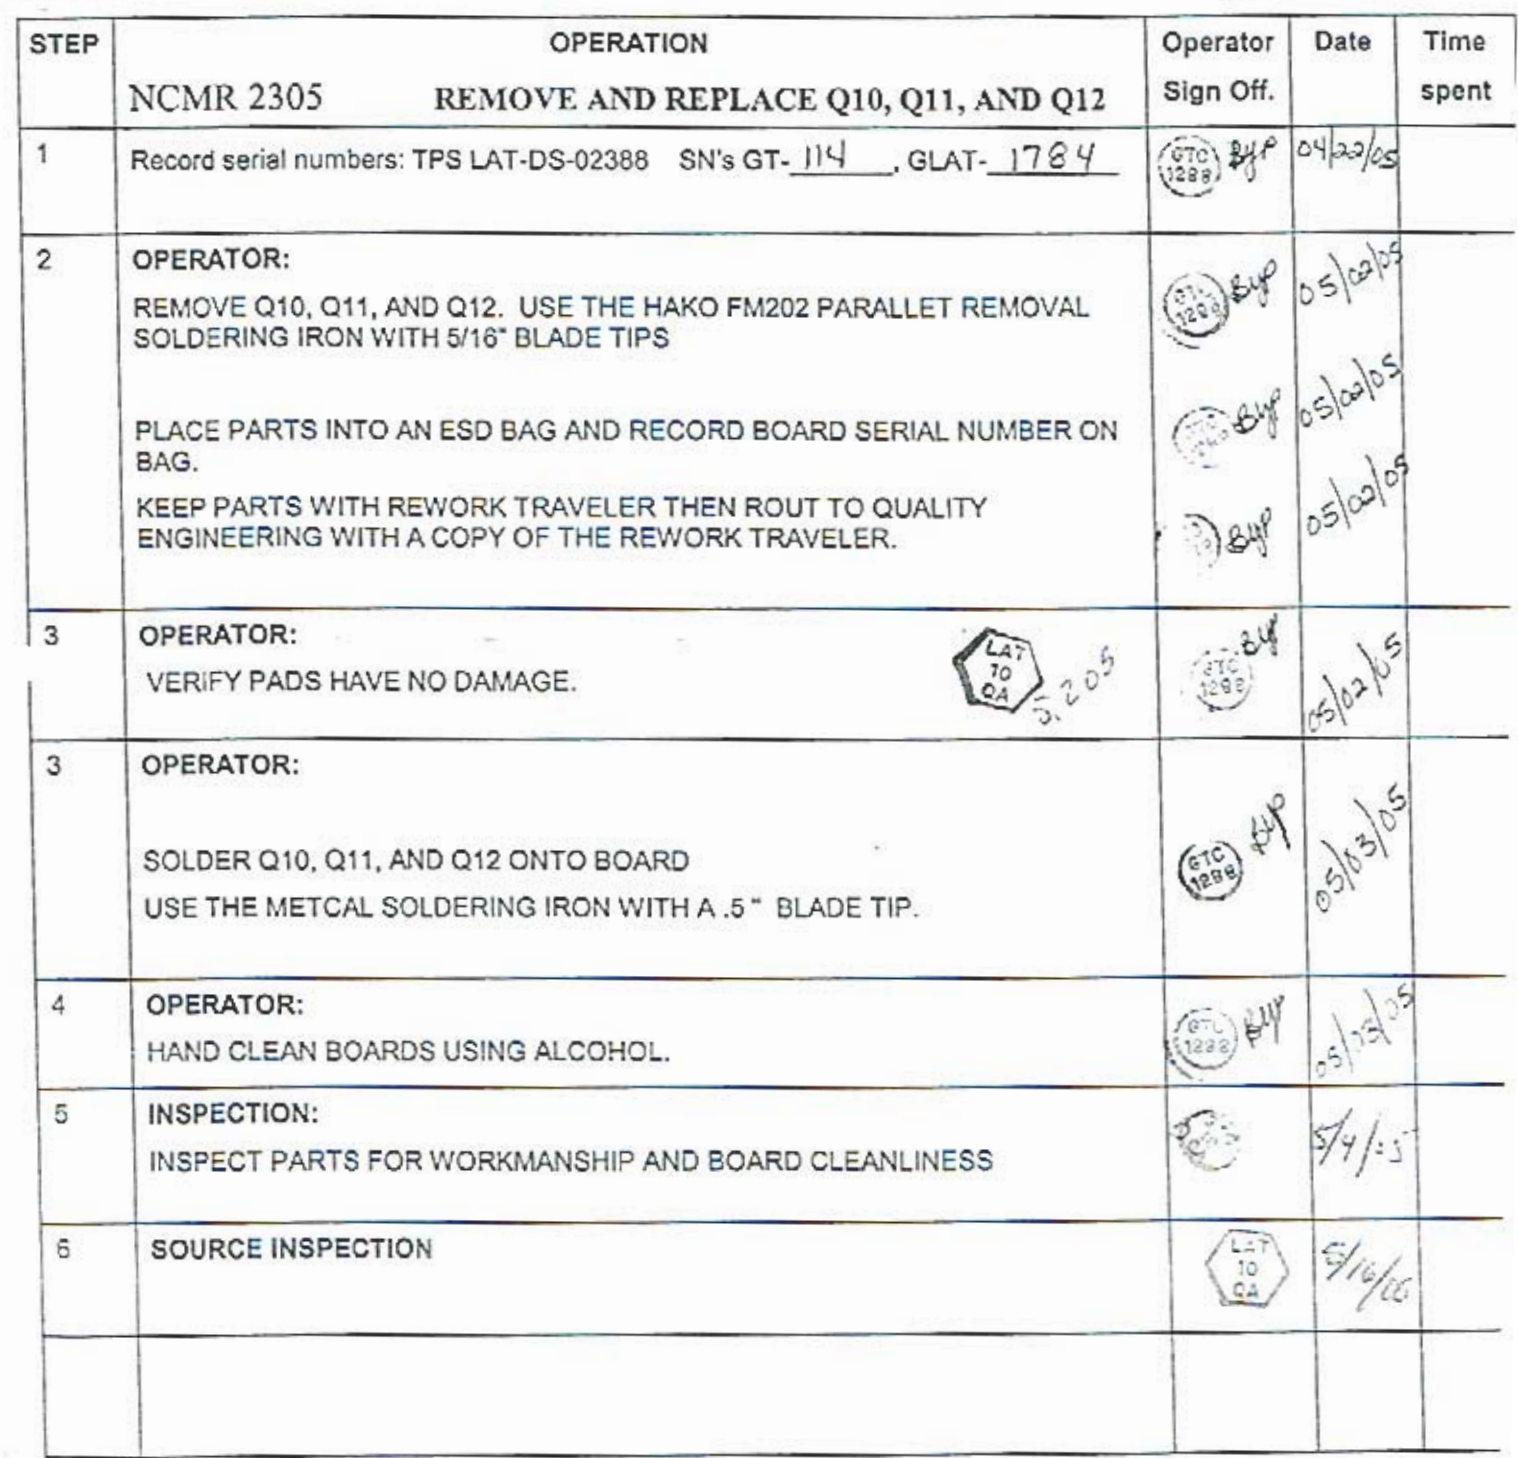 STEP OPERATION Operator Date Time
NCMR 2305 REMOVE AND REPLACE Q10, Q11, AND Q12 Sign Off. spent
1 Record serial numbers: TPS LAT-DS-02388 SN's GT- 114 , GLAT- 1784 GTC 1288 Byp 04/22/05
2 OPERATOR:
REMOVE Q10, Q11, AND Q12. USE THE HAKO FM202 PARALLET REMOVAL Byp 05/02/05
SOLDERING IRON WITH 5/16" BLADE TIPS
PLACE PARTS INTO AN ESD BAG AND RECORD BOARD SERIAL NUMBER ON Byp 05/02/05
BAG.
KEEP PARTS WITH REWORK TRAVELER THEN ROUT TO QUALITY Byp 05/02/05
ENGINEERING WITH A COPY OF THE REWORK TRAVELER.
3 OPERATOR:
VERIFY PADS HAVE NO DAMAGE. LAT 10 QA 5.2.05 GTC 1288 Byp 05/02/05
3 OPERATOR:
SOLDER Q10, Q11, AND Q12 ONTO BOARD GTC 1288 Byp 05/03/05
USE THE METCAL SOLDERING IRON WITH A .5 " BLADE TIP.
4 OPERATOR:
HAND CLEAN BOARDS USING ALCOHOL. GTC 1288 Byp 05/03/05
5 INSPECTION:
INSPECT PARTS FOR WORKMANSHIP AND BOARD CLEANLINESS
6 SOURCE INSPECTION LAT 10 QA